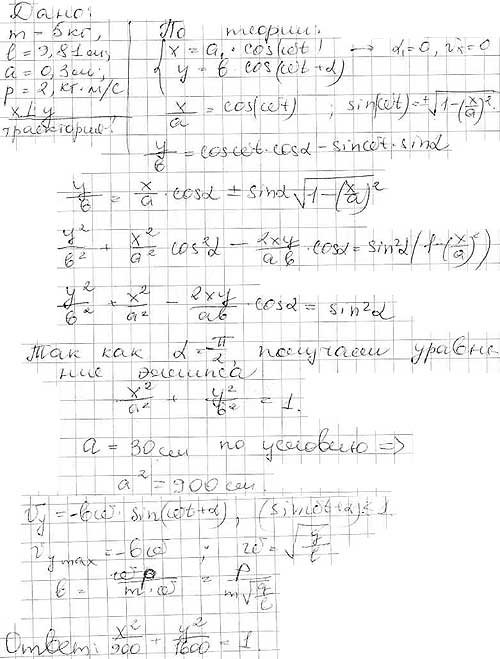 Дано:
m - 5кг,
l = 9,81см,
a = 0,3см;
p = 2, кг·м/с
x⊥y
траектория?
По теории:
{ x = a₁ · cos(ωt)
y = в cos(ωt+α)
→ α₁=0, vx=0
x/a = cos(ωt) ; sin(ωt)=±√(1-(x/a)²)
y/в = cosωt·cosα - sinωt·sinα
y/в = x/a · cosα ± sinα √(1-(x/a)²)
y²/в² + x²/a² cos²α - 2xy/aв · cosα = sin²α(1-(x/a)²)
y²/в² + x²/a² - 2xy/aв · cosα = sin²α
Так как α=π/2, получаем уравне-
ние эллипса
x²/a² + y²/в² = 1.
a = 30см по условию =>
a² = 900 см.
Vy = -вω · sin(ωt+α), (sinωt+α)≤1
Vy max = -вω ; ω = √(g/l)
в = p/(m·ω) = p/(m√(g/l))
Ответ: x²/900 + y²/1600 = 1.